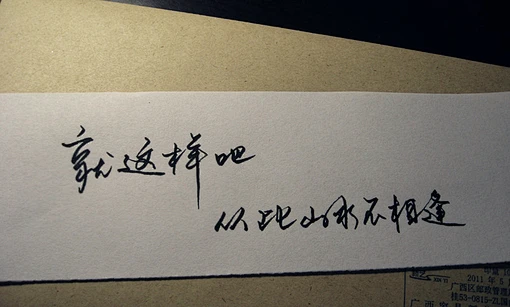 就这样吧
从此山水不相逢
2011年5
广西区邮政管理
桂S3-0815-2LB